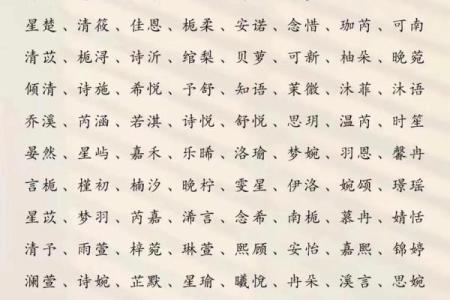 星楚、清筱、佳恩、栀柔、安诺、念惜、珈芮、可南
清苡、栀浔、诗沂、绾梨、贝萝、可新、柚朵、晚菀
倾清、诗施、希悦、予舒、知语、茉微、沐菲、沐语
乔溪、芮涵、若淇、诗悦、舒悦、思玥、温芮、时笙
晏然、星屿、嘉禾、乐晞、洛瑜、梦婉、羽恩、馨冉
言栀、槿初、楠汐、晚柠、雯星、伊洛、婉颂、璟瑶
星苡、梦羽、芮嘉、浠言、念希、南栀、慕冉、婧恬
清予、雨萱、梓菀、琳萱、熙顾、安怡、嘉熙、锦婷
澜萱、诗婉、芷默、星瑜、曦悦、冉朵、溪言、思婉